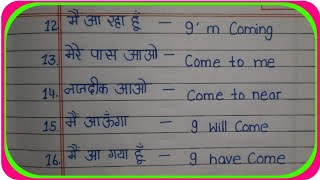 12. मैं आ रहा हूँ — I'm Coming
13. मेरे पास आओ — Come to me
14. नजदीक आओ — Come to near
15. मैं आऊँगा — I will Come
16. मैं आ गया हूँ — I have Come